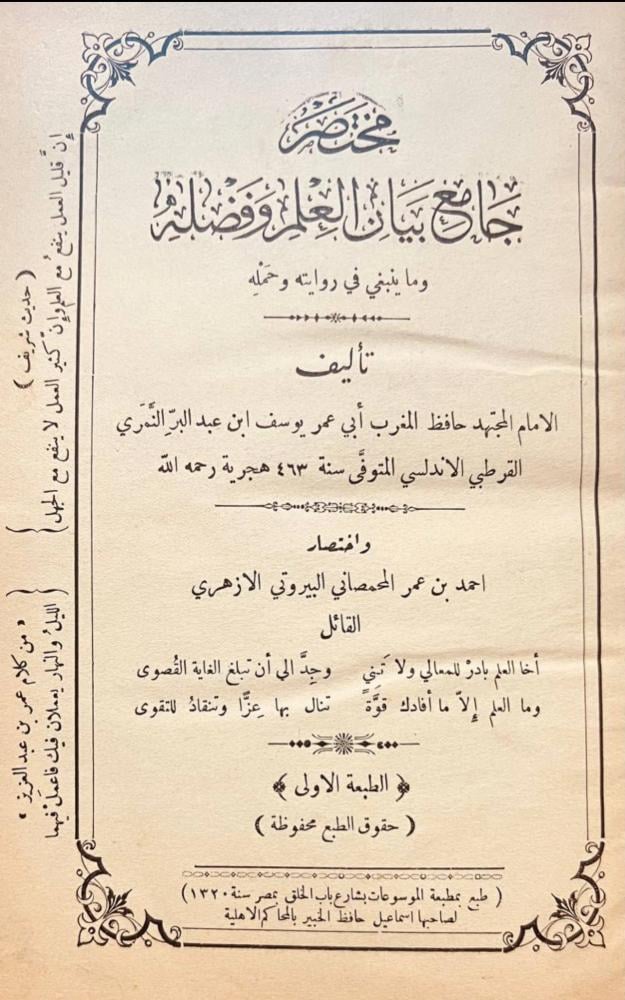 مختصر
جَامِع بَيَان العِلم وَفَضلِهُ
وما ينبغي في روايته وحَمْلِه
تأليف
الامام المجتهد حافظ المغرب أبي عمر يوسف ابن عبد البرّ النَّمَري
القرطبي الاندلسي المتوفَّى سنة ٤٦٣ هجرية رحمه الله
واختصار
احمد بن عمر المحمصاني البيروتي الازهري
القائل
أخا العلم بادرْ للمعالي ولا تَـنِي وجِدَّ الى أن تبلغ الغاية القُصوى
وما العلم إلاّ ما أفادك قوَّةً تنال بها عِزًّا وتنقادُ للتقوى
﴿ الطبعة الاولى ﴾
( حقوق الطبع محفوظة )
( طبع بمطبعة الموسوعات بشارع باب الخلق بمصر سنة ١٣٢٠ )
لصاحبها اسماعيل حافظ الخبير بالمحاكم الاهلية
إنَّ قليل العمل ينفعُ مع العلم وإنّ كثير العمل لا ينفع مع الجهل
( حديث شريف )
الليلُ والنهار يعملان فيك فاعمل فيهما
« من كلام عمر بن عبد العزيز »